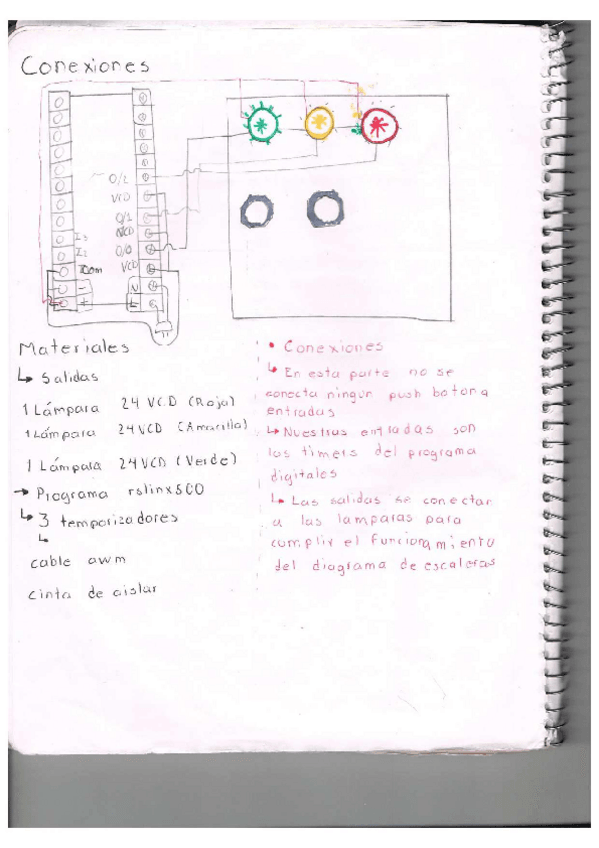 Conexiones
O/2
VCD
O/1
VCD
I3
I2
O/0
COM
VCD
-
N
+
L
Materiales
↳ Salidas
1 Lámpara 24 VCD (Roja)
1 Lámpara 24VCD (Amarilla)
1 Lámpara 24VCD (Verde)
→ Programa rslinx500
↳ 3 temporizadores
↳
cable awm
cinta de aislar
• Conexiones
↳ En esta parte no se
conecta ningun push boton a
entradas
↳ Nuestras entradas son
los timers del programa
digitales
↳ Las salidas se conectan
a las lamparas para
cumplir el funcionamiento
del diagrama de escaleras